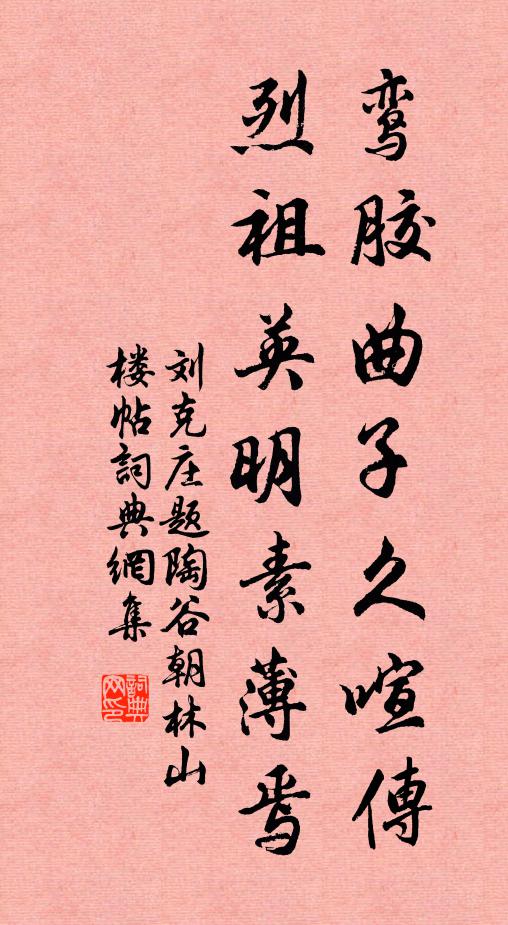 鸾胶曲子久喧傳
烈祖英明素薄焉
刘克庄题陶谷朝林山
楼帖詞典網集
詞典網印